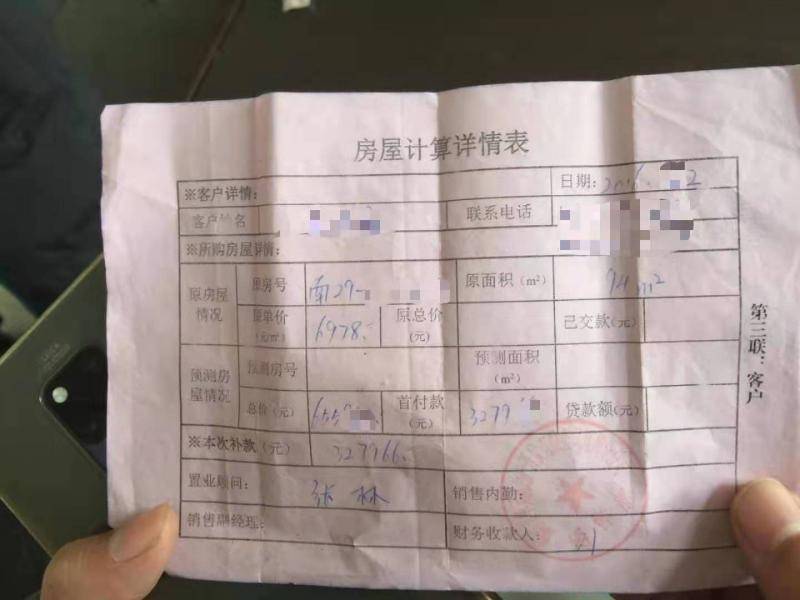 房屋计算详情表
※客户详情: 日期:
客户姓名 联系电话
※所购房屋详情:
原房屋情况 原房号 南27- 原面积（m²） 94m²
原单价（元/㎡） 6978. 原总价（元） 已交款（元）
预测房屋情况 预测房号 预测面积（m²）
总价（元） 首付款（元） 3279 贷款额（元）
※本次补款（元） 327966.
置业顾问: 张林 销售内勤:
销售副经理: 财务收款人:
第三联：客户